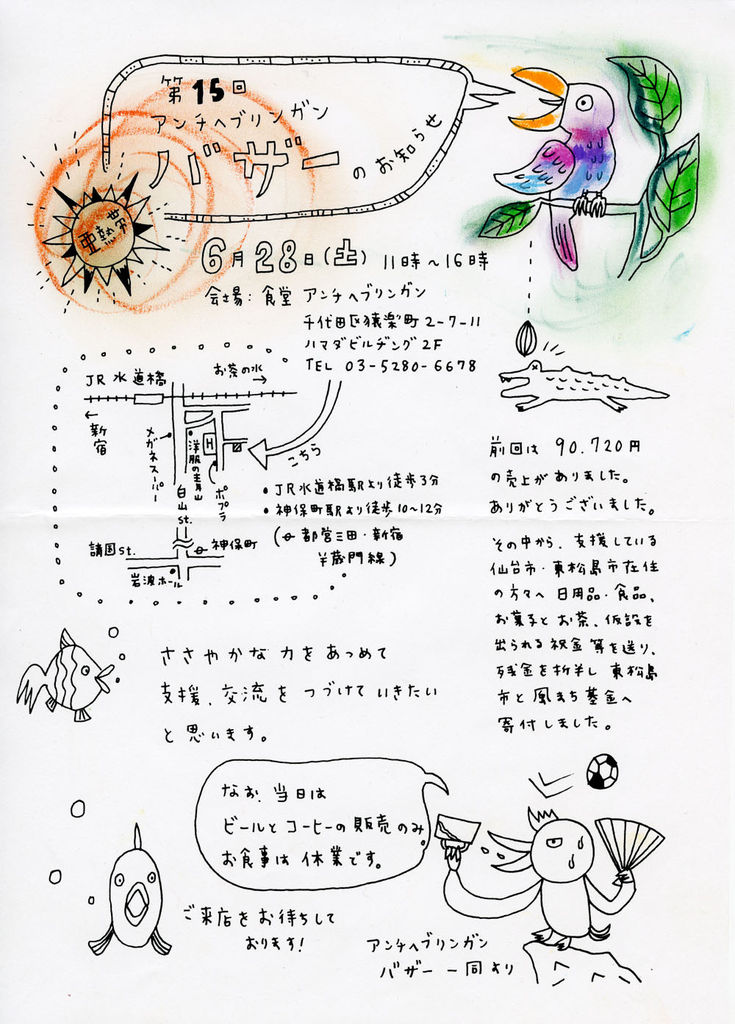 第15回
アンチヘブリンガン
バザーのお知らせ
亜熱帯
6月28日(土) 11時〜16時
会場: 食堂 アンチヘブリンガン
千代田区猿楽町2-7-11
ハマダビルヂング2F
TEL 03-5280-6678
JR 水道橋
お茶の水
→
←
新宿
メガネスーパー
洋服の青山
H
ポプラ
こちら
白山st.
神保町
靖国st.
岩波ホール
• JR水道橋駅より徒歩3分
• 神保町駅より徒歩10〜12分
(都営三田・新宿
半蔵門線)
前回は 90.720円
の売上がありました。
ありがとうございました。
その中から、支援している
仙台市・東松島市在住
の方々へ 日用品・食品、
お菓子とお茶、仮設を
出られる祝金等を送り、
残金を折半し 東松島
市と風まち基金へ
寄付しました。
ささやかな力をあつめて
支援、交流を つづけて いきたい
と 思います。
なお、当日は
ビールと コーヒーの 販売のみ。
お食事は 休業です。
ご来店を お待ちして
おります!
アンチヘブリンガン
バザー 一同より